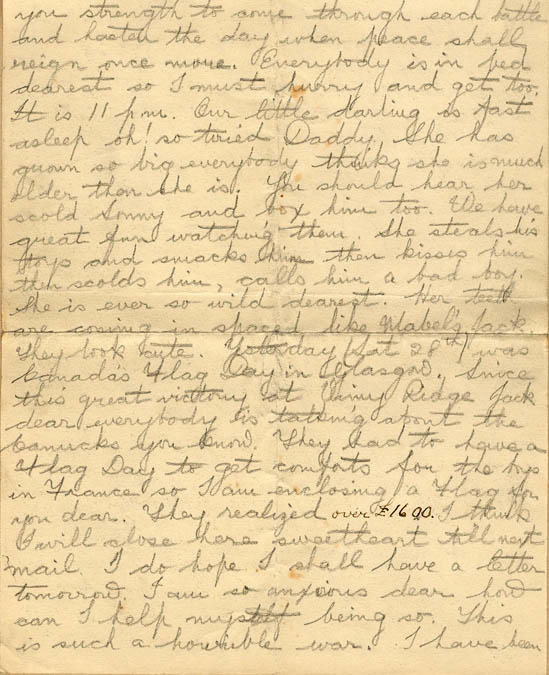 you strength to come through each battle
and hasten the day when peace shall
reign once more. Everybody is in bed
dearest so I must hurry and get too.
It is 11 p.m. Our little darling is fast
asleep oh! so tired Daddy. She has
grown so big everybody thinks she is much
older then she is. You should hear her
scold Sonny and box him too. We have
great fun watching them. She steals his
toys and smacks him then kisses him
then scolds him, calls him a bad boy.
She is ever so wild dearest. Her teeth
are coming in spaced like Mabel's Jack.
They look cute. Yesterday (Sat 28th) was
Canada's Flag Day in Glasgow. Since
this great victory at Vimy Ridge Jack
dear everybody is talking about the
Canucks you know. They had to have a
Flag Day to get comforts for the boys
in France so I am enclosing a Flag for
you dear. They realized over £1600. I think
I will close here sweetheart till next
mail. I do hope I shall have a letter
tomorrow. I am so anxious dear how
can I help myself being so. This
is such a horrible war. I have been